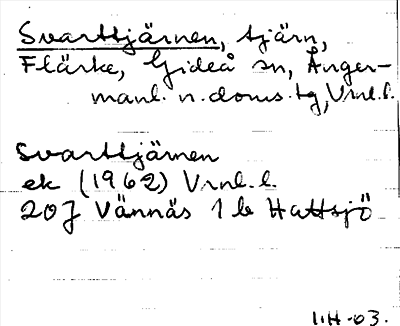 Svarttjärnen, tjärn,
Flärke, Gideå sn, Ånger-
manl. n. doms. tg, Vrnl.l.
Svarttjärnen
ek (1962) Vrnl.l.
20J Vännäs 1b Hattsjö
I.H-03.